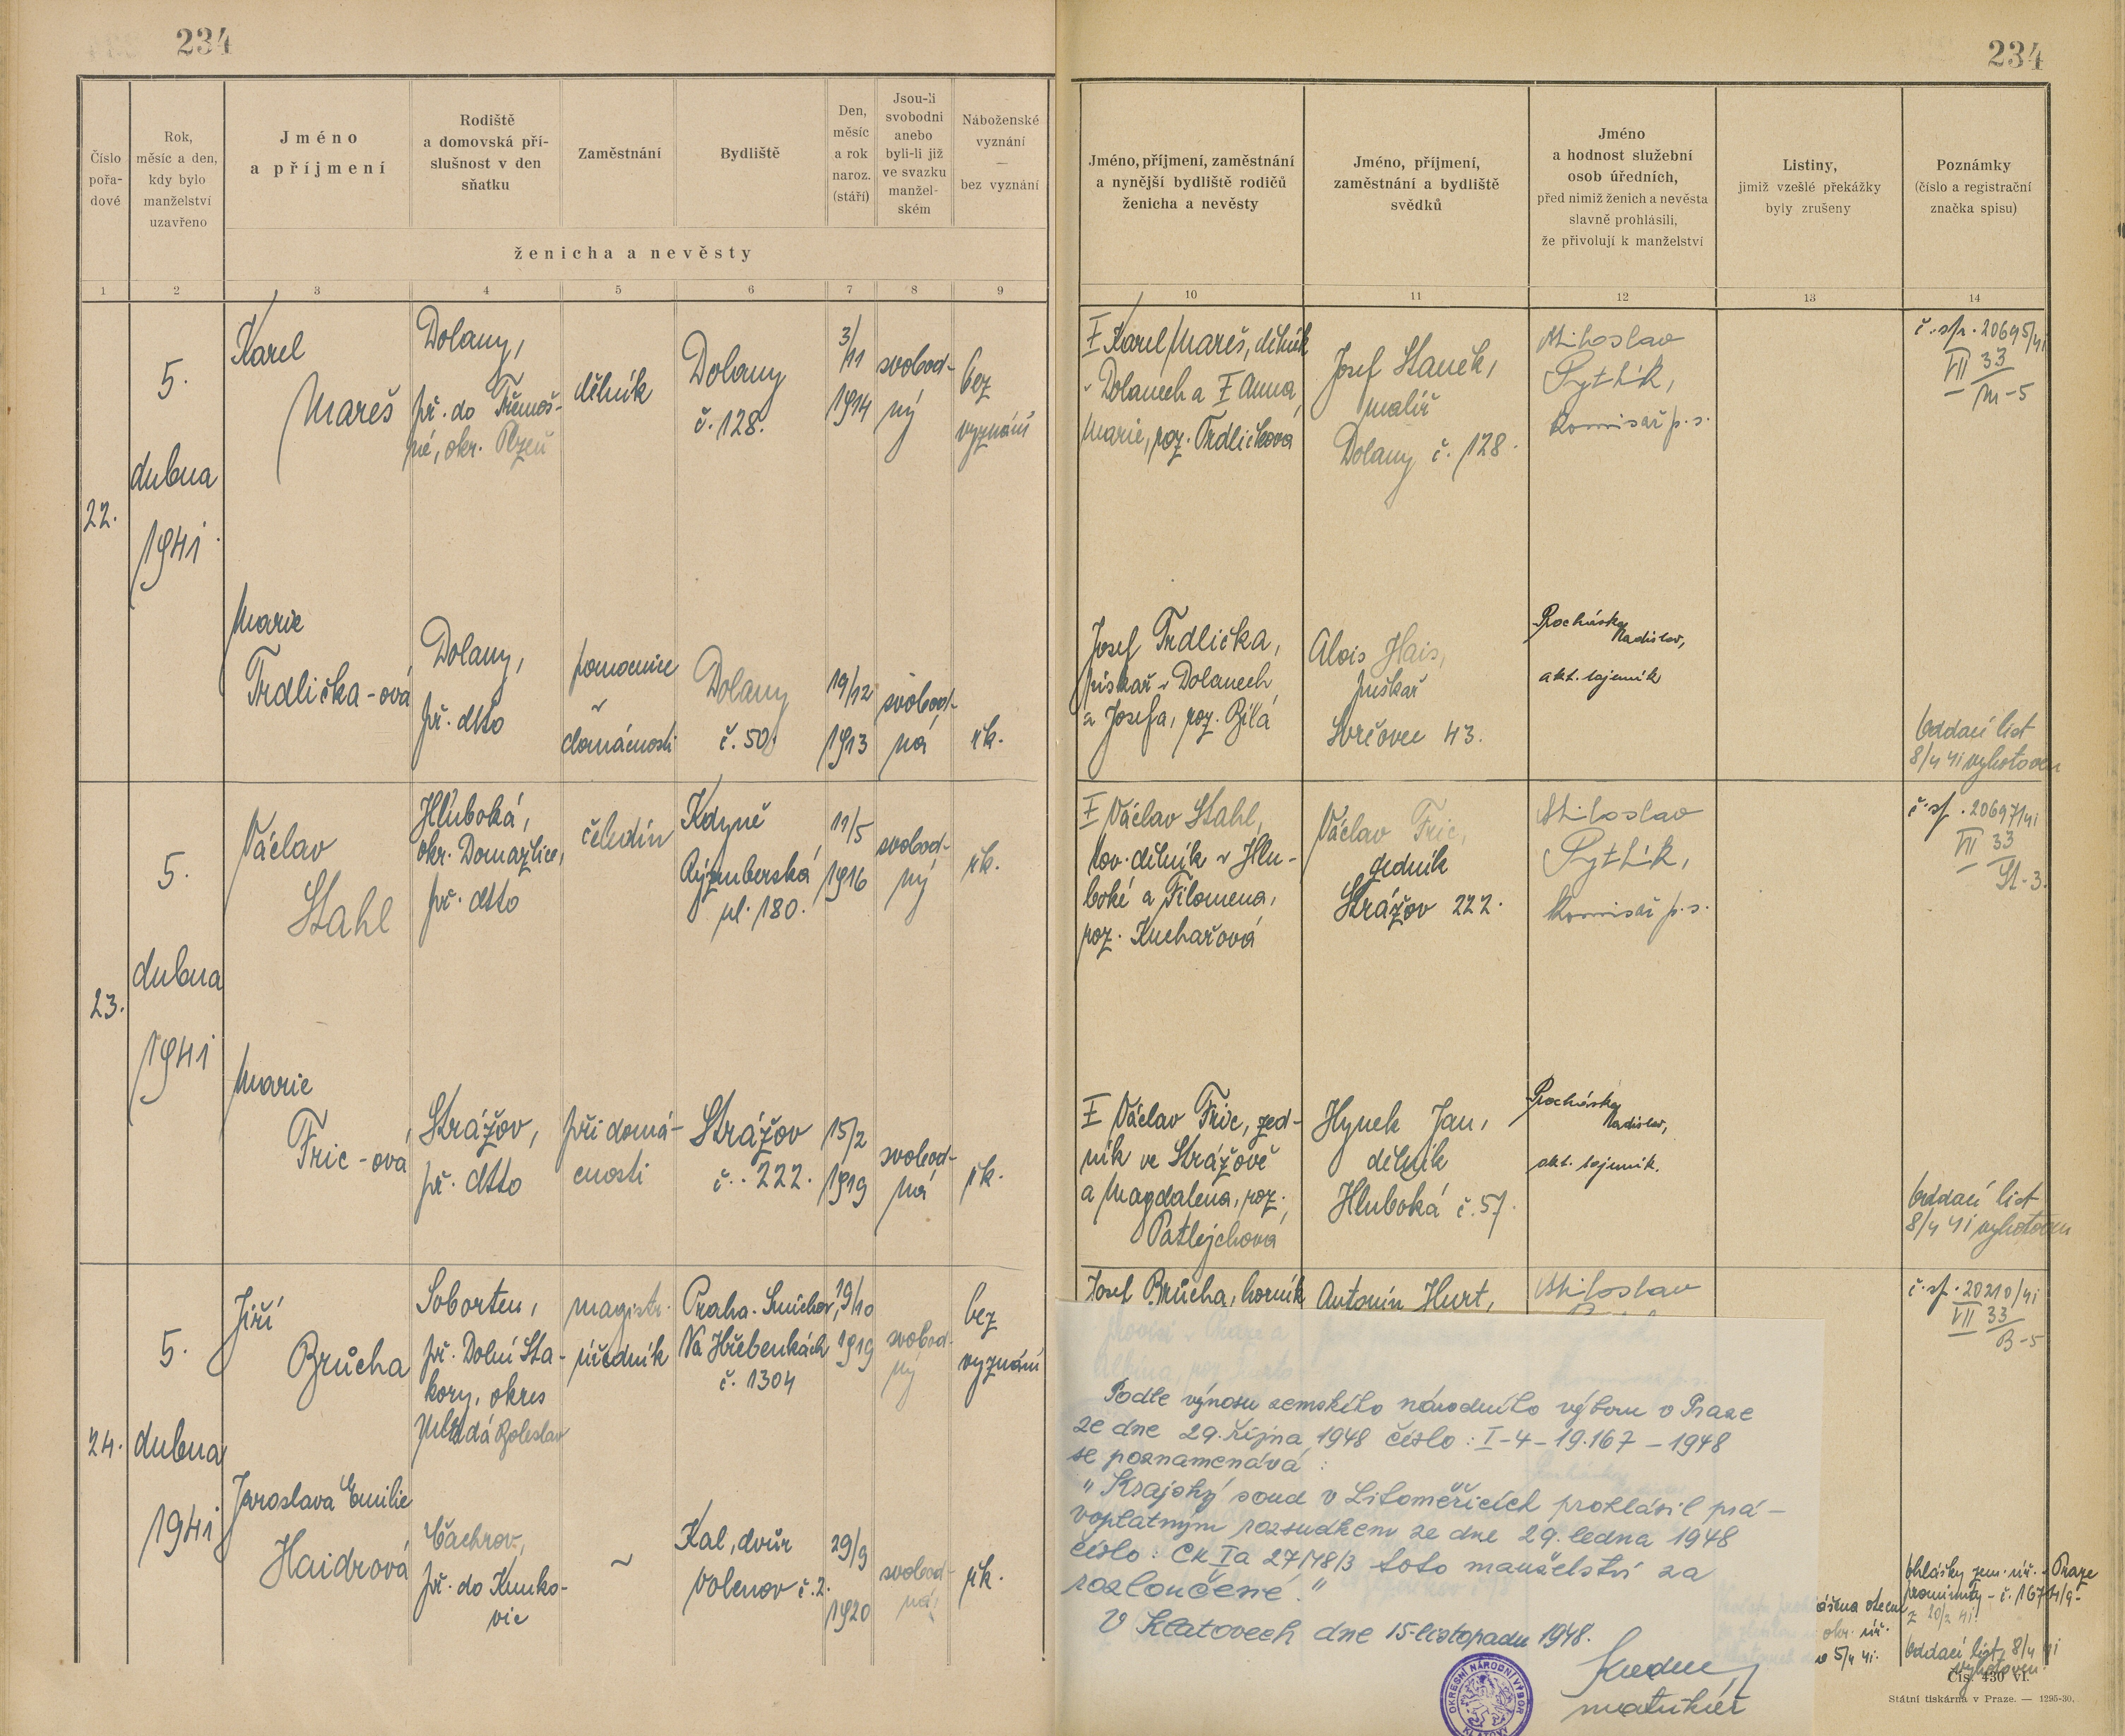 234
234
Číslo pořa-dové
Rok, měsíc a den, kdy bylo manželství uzavřeno
Jméno a příjmení
Rodiště a domovská pří-slušnost v den sňatku
Zaměstnání
Bydliště
Den, měsíc a rok naroz. (stáří)
Jsou-li svobodni anebo byli-li již ve svazku manžel-ském
Náboženské vyznání — bez vyznání
ženicha a nevěsty
Jméno, příjmení, zaměstnání a nynější bydliště rodičů ženicha a nevěsty
Jméno, příjmení, zaměstnání a bydliště svědků
Jméno a hodnost služební osob úředních, před nimiž ženich a nevěsta slavně prohlásili, že přivolují k manželství
Listiny, jimiž vzešlé překážky byly zrušeny
Poznámky (číslo a registrační značka spisu)
1 2 3 4 5 6 7 8 9 10 11 12 13 14
22.
5. dubna 1941
Karel
Mareš
Dolany,
př. do Třemoš-
né, okr. Plzeň
dělník
Dolany
č. 128.
3/11
1914
svobod-
ný
bez
vyznání
Karel Mareš, dělník
v Dolanech a Anna
Marie, roz. Trdličková
Josef Staněk,
malíř
Dolany č. 128.
Miloslav
Pytlík,
komisař p. s.
č. sp. 20695/41
VII 33
M-5
Marie
Trdlička-ová
Dolany,
př. dtto
pomocnice
v
domácnosti
Dolany
č. 50.
19/12
1913
svobod-
ná
řk.
Josef Trdlička,
pískař v Dolanech
a Josefa, roz. Bílá
Alois Hais,
puškař
Svrčovec 43.
Procházka
Ladislav,
akt. tajemník
Oddací list
8/4 41 vyhotoven
23.
5. dubna 1941
Václav
Stahl
Hluboká,
okr. Domažlice,
př. dtto
čeledín
Kdyně
Rýzmberská
ul. 180.
11/5
1916
svobod-
ný
řk.
Václav Stahl,
tov. dělník v Hlu-
boké a Filomena,
roz. Kuchařová
Václav Fric,
zedník
Strážov 222.
Miloslav
Pytlík,
komisař p. s.
č. sp. 20697/41
VII 33
St-3.
Marie
Fric-ová
Strážov,
př. dtto
při domá-
cnosti
Strážov
č. 222.
15/2
1919
svobod-
ná
řk.
Václav Fric, zed-
ník ve Strážově
a Magdalena, roz.
Patlejchová
Hynek Jan,
dělník
Hluboká č. 57.
Procházka
Ladislav,
akt. tajemník.
Oddací list
8/4 41 vyhotoven
24.
5. dubna 1941
Jiří
Brůcha
Soborten,
př. Dolní Sta-
kory, okres
Mladá Boleslav
magistr.
úředník
Praha-Smíchov,
Na Hřebenkách
č. 1304
19/10
1919
svobod-
ný
bez
vyznání
Josef Brůcha, horník
Antonín Hurt,
Miloslav
č. sp. 20210/41
VII 33
B-5
Jaroslava Emilie
Haidrová
Čachrov,
př. do Kunko-
vic
~
Kal, dvůr
Volenov č. 2.
29/9
1920
svobod-
ná
řk.
Podle výnosu zemského národního výboru v Praze
ze dne 29. října 1948 číslo: I-4-19.167-1948
se poznamenává:
"Krajský soud v Litoměřicích prohlásil prá-
voplatným rozsudkem ze dne 29. ledna 1948
číslo: Ck Ia 27/48/3 toto manželství za
rozloučené."
V Klatovech dne 15. listopadu 1948.
matrikář
OKRESNÍ NÁRODNÍ VÝBOR
okr. úř.
5/4 41.
Ohlášky zem. úř. v Praze
prominuty - č.
z 20/2 41
Oddací list 8/4 41
vyhotoven.
Čís. 430 VI.
Státní tiskárna v Praze. — 1295-30.